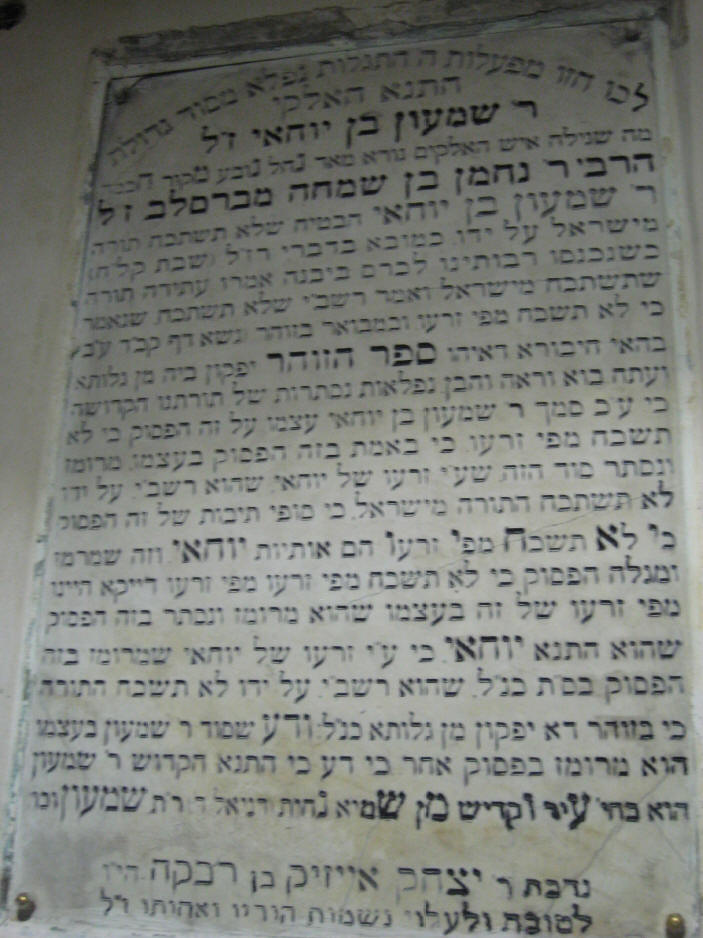 לכו חזו מפעלות ה התגלות נפלא מסוד גדולת
התנא האלקי
ר' שמעון בן יוחאי ז"ל
מה שגילה איש האלקים נורא מאד נחל נובע מקור חכמה
הרב ר' נחמן בן שמחה מברסלב ז"ל
ר' שמעון בן יוחאי הבטיח שלא תשתכח תורה
מישראל על ידו. כמובא בדברי רז"ל (שבת קל"ח)
כשנכנסו רבותינו לכרם ביבנה אמרו עתידה תורה
שתשתכח מישראל ואמר רשב"י שלא תשתכח שנאמר
כי לא תשכח מפי זרעו וכמבואר בזוהר (נשא דף קכ"ד ע"ב)
בהאי חיבורא דאיהו ספר הזוהר יפקון ביה מן גלותא
ועתה בוא וראה והבן נפלאות נסתרות של תורתנו הקדושה
כי ע"כ סמך ר' שמעון בן יוחאי עצמו על זה הפסוק כי לא
תשכח מפי זרעו. כי באמת בזה הפסוק בעצמו מרומז
ונסתר סוד הזה. שע"י זרעו של יוחאי. שהוא רשב"י. על ידו
לא תשתכח התורה מישראל. כי סופי תיבות של זה הפסוק
כי לא תשכח מפי זרעו הם אותיות יוחאי. וזה שמרמז
ומגלה הפסוק כי לא תשכח מפי זרעו מפי זרעו דייקא היינו
מפי זרעו של זה בעצמו שהוא מרומז ונסתר בזה הפסוק
שהוא התנא יוחאי. כי ע"י זרעו של יוחאי שמרומז בזה
הפסוק בס"ת כנ"ל. שהוא רשב"י. על ידו לא תשכח התורה
כי בזוהר דא יפקון מן גלותא כנ"ל. ודע שסוד ר' שמעון בעצמו
הוא מרומז בפסוק אחר כי דע כי התנא הקדוש ר' שמעון
הוא בחי' עיר וקדיש מן שמיא נחית דניאל ד: ר"ת שמעון וכו
נדבת ר' יצחק אייזיק בן רבקה הי"ו
לטובת ולעלוי נשמות הוריו ואחותו ז"ל